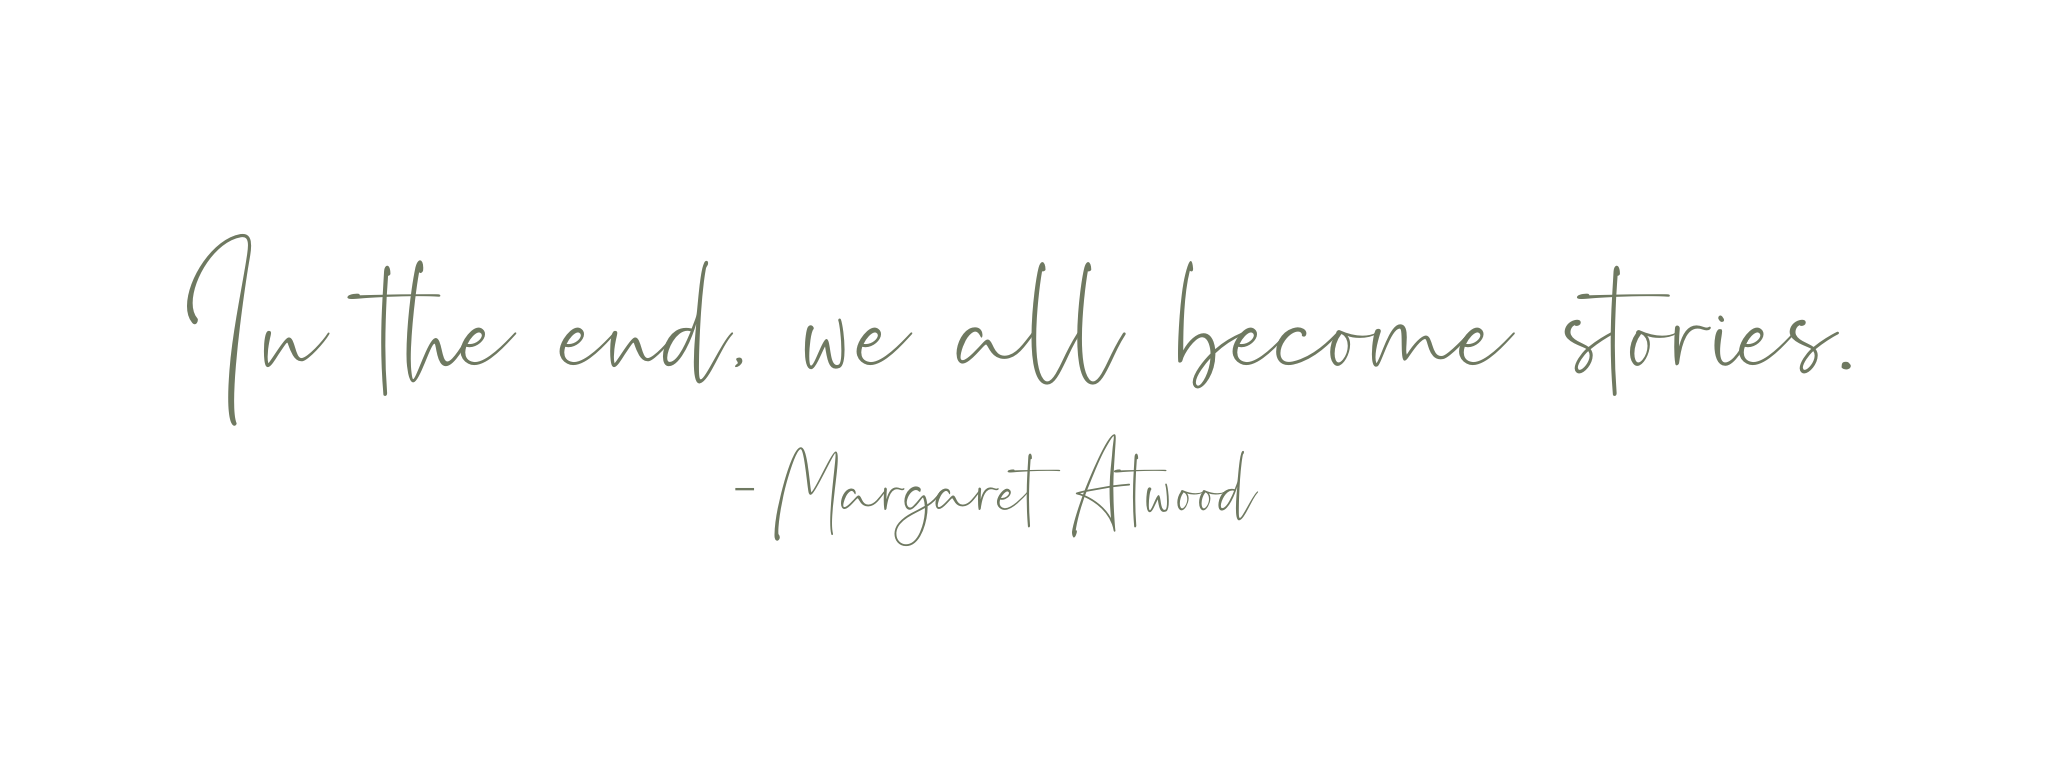 In the end, we all become stories.
- Margaret Atwood